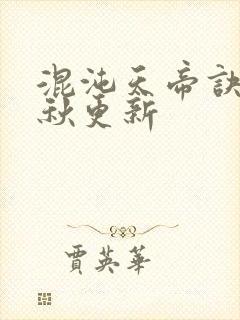 混沌天帝訣
秋更新
賈英華